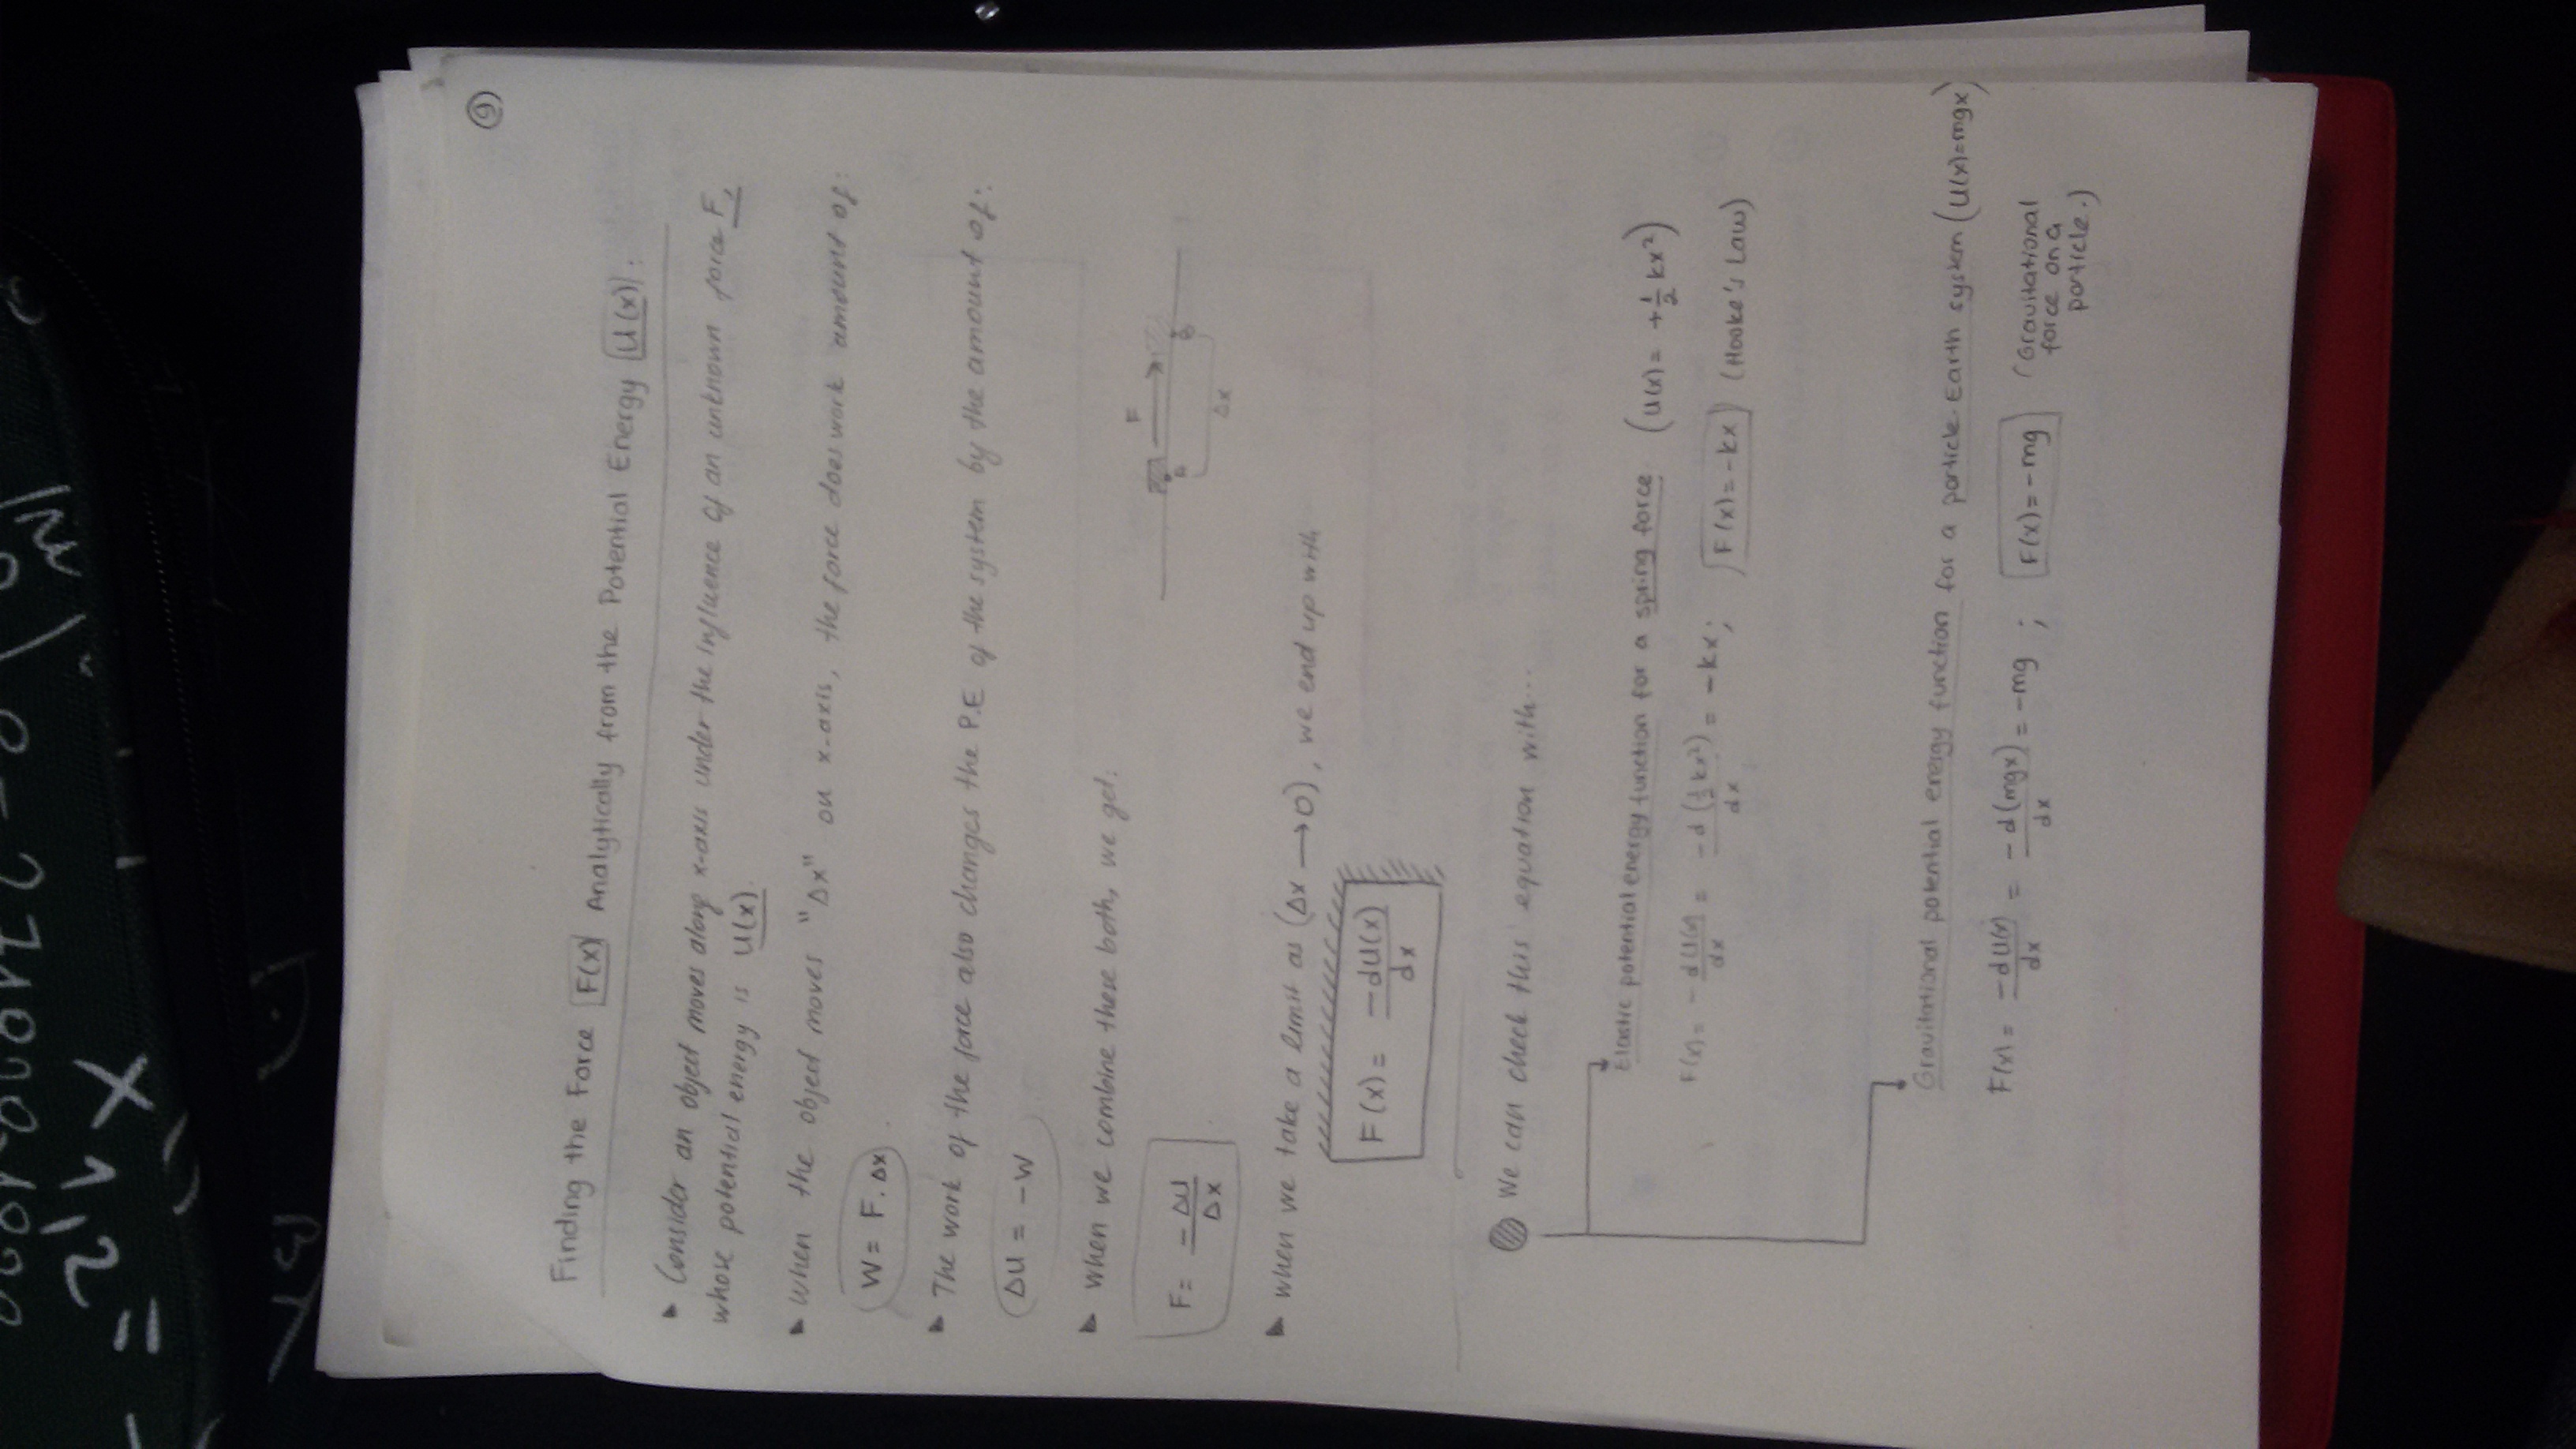 9
Finding the Force F(x) Analytically from the Potential Energy U(x):
Consider an object moves along x-axis under the influence of an unknown force F,
whose potential energy is U(x).
When the object moves "Δx" on x-axis, the force does work amount of:
W = F. Δx
The work of the force also changes the P.E of the system by the amount of:
ΔU = -W
when we combine these both, we get:
F
F= -ΔU/Δx
Δx
when we take a limit as (Δx → 0), we end up with
F(x) = -dU(x)/dx
We can check this equation with...
Elastic potential energy function for a spring force (U(x) = +1/2 kx²)
F(x) = -dU(x)/dx = -d(1/2 kx²)/dx = -kx; F(x)=-kx (Hooke's Law)
Gravitational potential energy function for a particle-Earth system (U(x)=mgx)
F(x) = -dU(x)/dx = -d(mgx)/dx = -mg ; F(x)=-mg (Gravitational
force on a
particle.)
X1,2 =